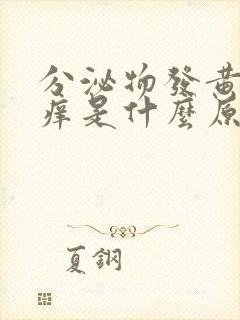 分泌物發黃
痒是什麼原
夏鋼